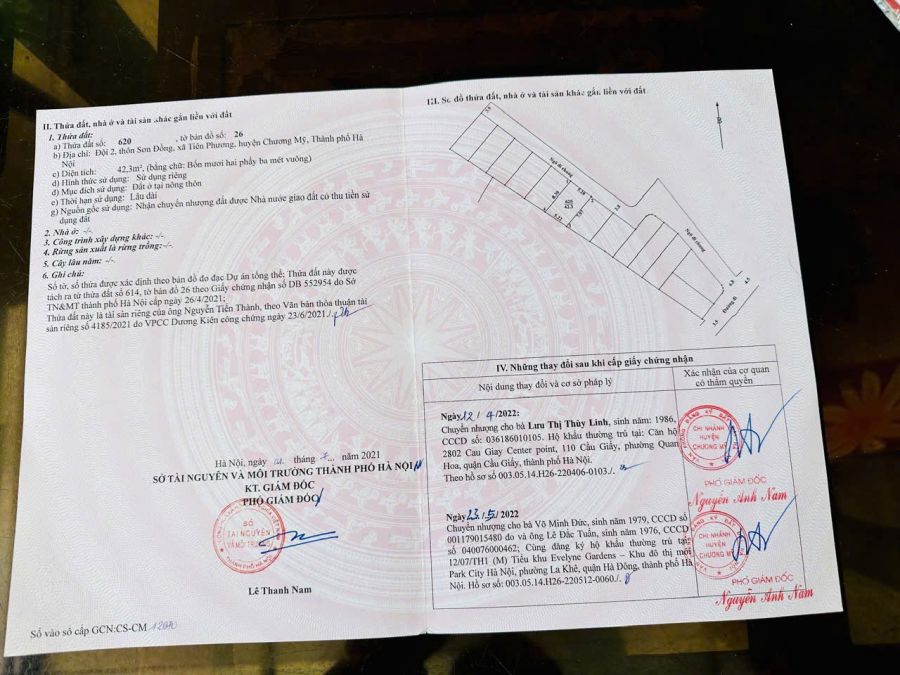 II. Thửa đất, nhà ở và tài sản khác gắn liền với đất
1. Thửa đất:
a) Thửa đất số: 620 , tờ bản đồ số: 26
b) Địa chỉ: Đội 2, thôn Sơn Đồng, xã Tiên Phương, huyện Chương Mỹ, Thành phố Hà
Nội
c) Diện tích: 42,3m², (bằng chữ: Bốn mươi hai phẩy ba mét vuông)
d) Hình thức sử dụng: Sử dụng riêng
đ) Mục đích sử dụng: Đất ở tại nông thôn
e) Thời hạn sử dụng: Lâu dài
g) Nguồn gốc sử dụng: Nhận chuyển nhượng đất được Nhà nước giao đất có thu tiền sử
dụng đất
2. Nhà ở: -/-
3. Công trình xây dựng khác: -/-
4. Rừng sản xuất là rừng trồng: -/-
5. Cây lâu năm: -/-
6. Ghi chú:
Số tờ, số thửa được xác định theo bản đồ đo đạc Dự án tổng thể; Thửa đất này được
tách ra từ thửa đất số 614, tờ bản đồ 26 theo Giấy chứng nhận số DB 552954 do Sở
TN&MT thành phố Hà Nội cấp ngày 26/4/2021;
Thửa đất này là tài sản riêng của ông Nguyễn Tiến Thành, theo Văn bản thỏa thuận tài
sản riêng số 4185/2021 do VPCC Dương Kiên công chứng ngày 23/6/2021./.
Hà Nội, ngày tháng năm 2021
SỞ TÀI NGUYÊN VÀ MÔI TRƯỜNG THÀNH PHỐ HÀ NỘI
KT. GIÁM ĐỐC
PHÓ GIÁM ĐỐC
SỞ
TÀI NGUYÊN
VÀ MÔI TRƯỜNG
THÀNH PHỐ HÀ NỘI
Lê Thanh Nam
Số vào sổ cấp GCN:CS-CM
III. Sơ đồ thửa đất, nhà ở và tài sản khác gắn liền với đất
Ngõ đi chung
Ngõ đi chung
Đường đi
620
42.3
4.8
4.5
3.5
IV. Những thay đổi sau khi cấp giấy chứng nhận
Nội dung thay đổi và cơ sở pháp lý
Xác nhận của cơ quan
có thẩm quyền
Ngày 12/4/2022:
Chuyển nhượng cho bà Lưu Thị Thùy Linh, sinh năm: 1986,
CCCD số: 036186010105. Hộ khẩu thường trú tại: Căn hộ
2802 Cau Giay Center point, 110 Cầu Giấy, phường Quan
Hoa, quận Cầu Giấy, thành phố Hà Nội.
Theo hồ sơ số 003.05.14.H26-220406-0103./.
CHI NHÁNH
HUYỆN
CHƯƠNG MỸ
PHÓ GIÁM ĐỐC
Nguyễn Anh Nam
Ngày 23/5/2022:
Chuyển nhượng cho bà Võ Minh Đức, sinh năm 1979, CCCD số
001179015480 do và ông Lê Đắc Tuấn, sinh năm 1976, CCCD
số 040076000462; Cùng đăng ký hộ khẩu thường trú tại:
12/07/TH1 (M) Tiểu khu Evelyne Gardens – Khu đô thị mới
Park City Hà Nội, phường La Khê, quận Hà Đông, thành phố Hà
Nội. Hồ sơ số: 003.05.14.H26-220512-0060./.
CHI NHÁNH
HUYỆN
CHƯƠNG MỸ
PHÓ GIÁM ĐỐC
Nguyễn Anh Nam